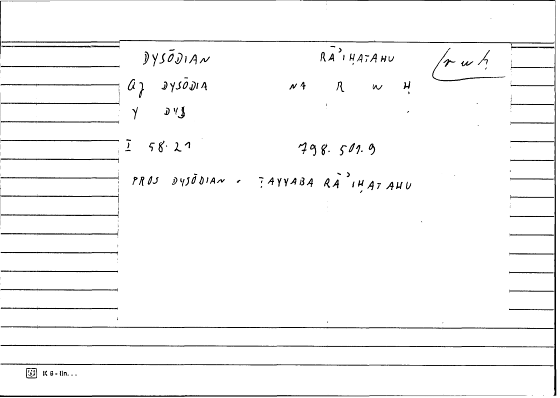 DYSŌDIAN RĀʾIḤATAHU r w ḥ
AJ DYSŌDIA NA R W Ḥ
Y DYS
I 58.21 798.501.9
PROS DYSŌDIAN. ṬAYYABA RĀʾIḤATAHU
K 6 - lin...